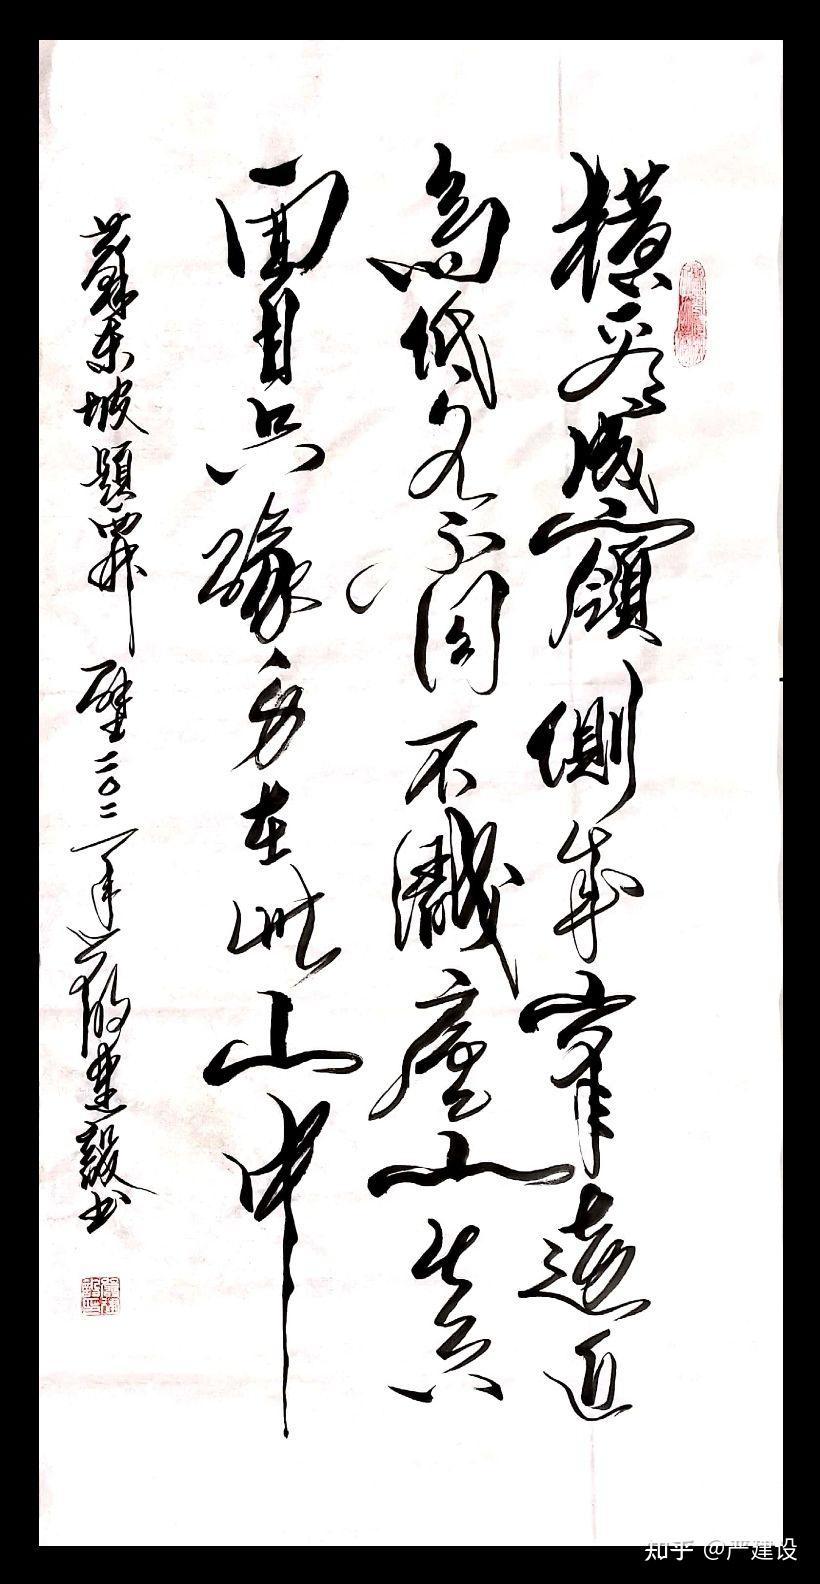 橫看成嶺側成峯遠近
高低各不同不識廬山真
面目只緣身在此山中
蘇東坡題西林壁二〇二一年嚴建設書
知乎 @严建设